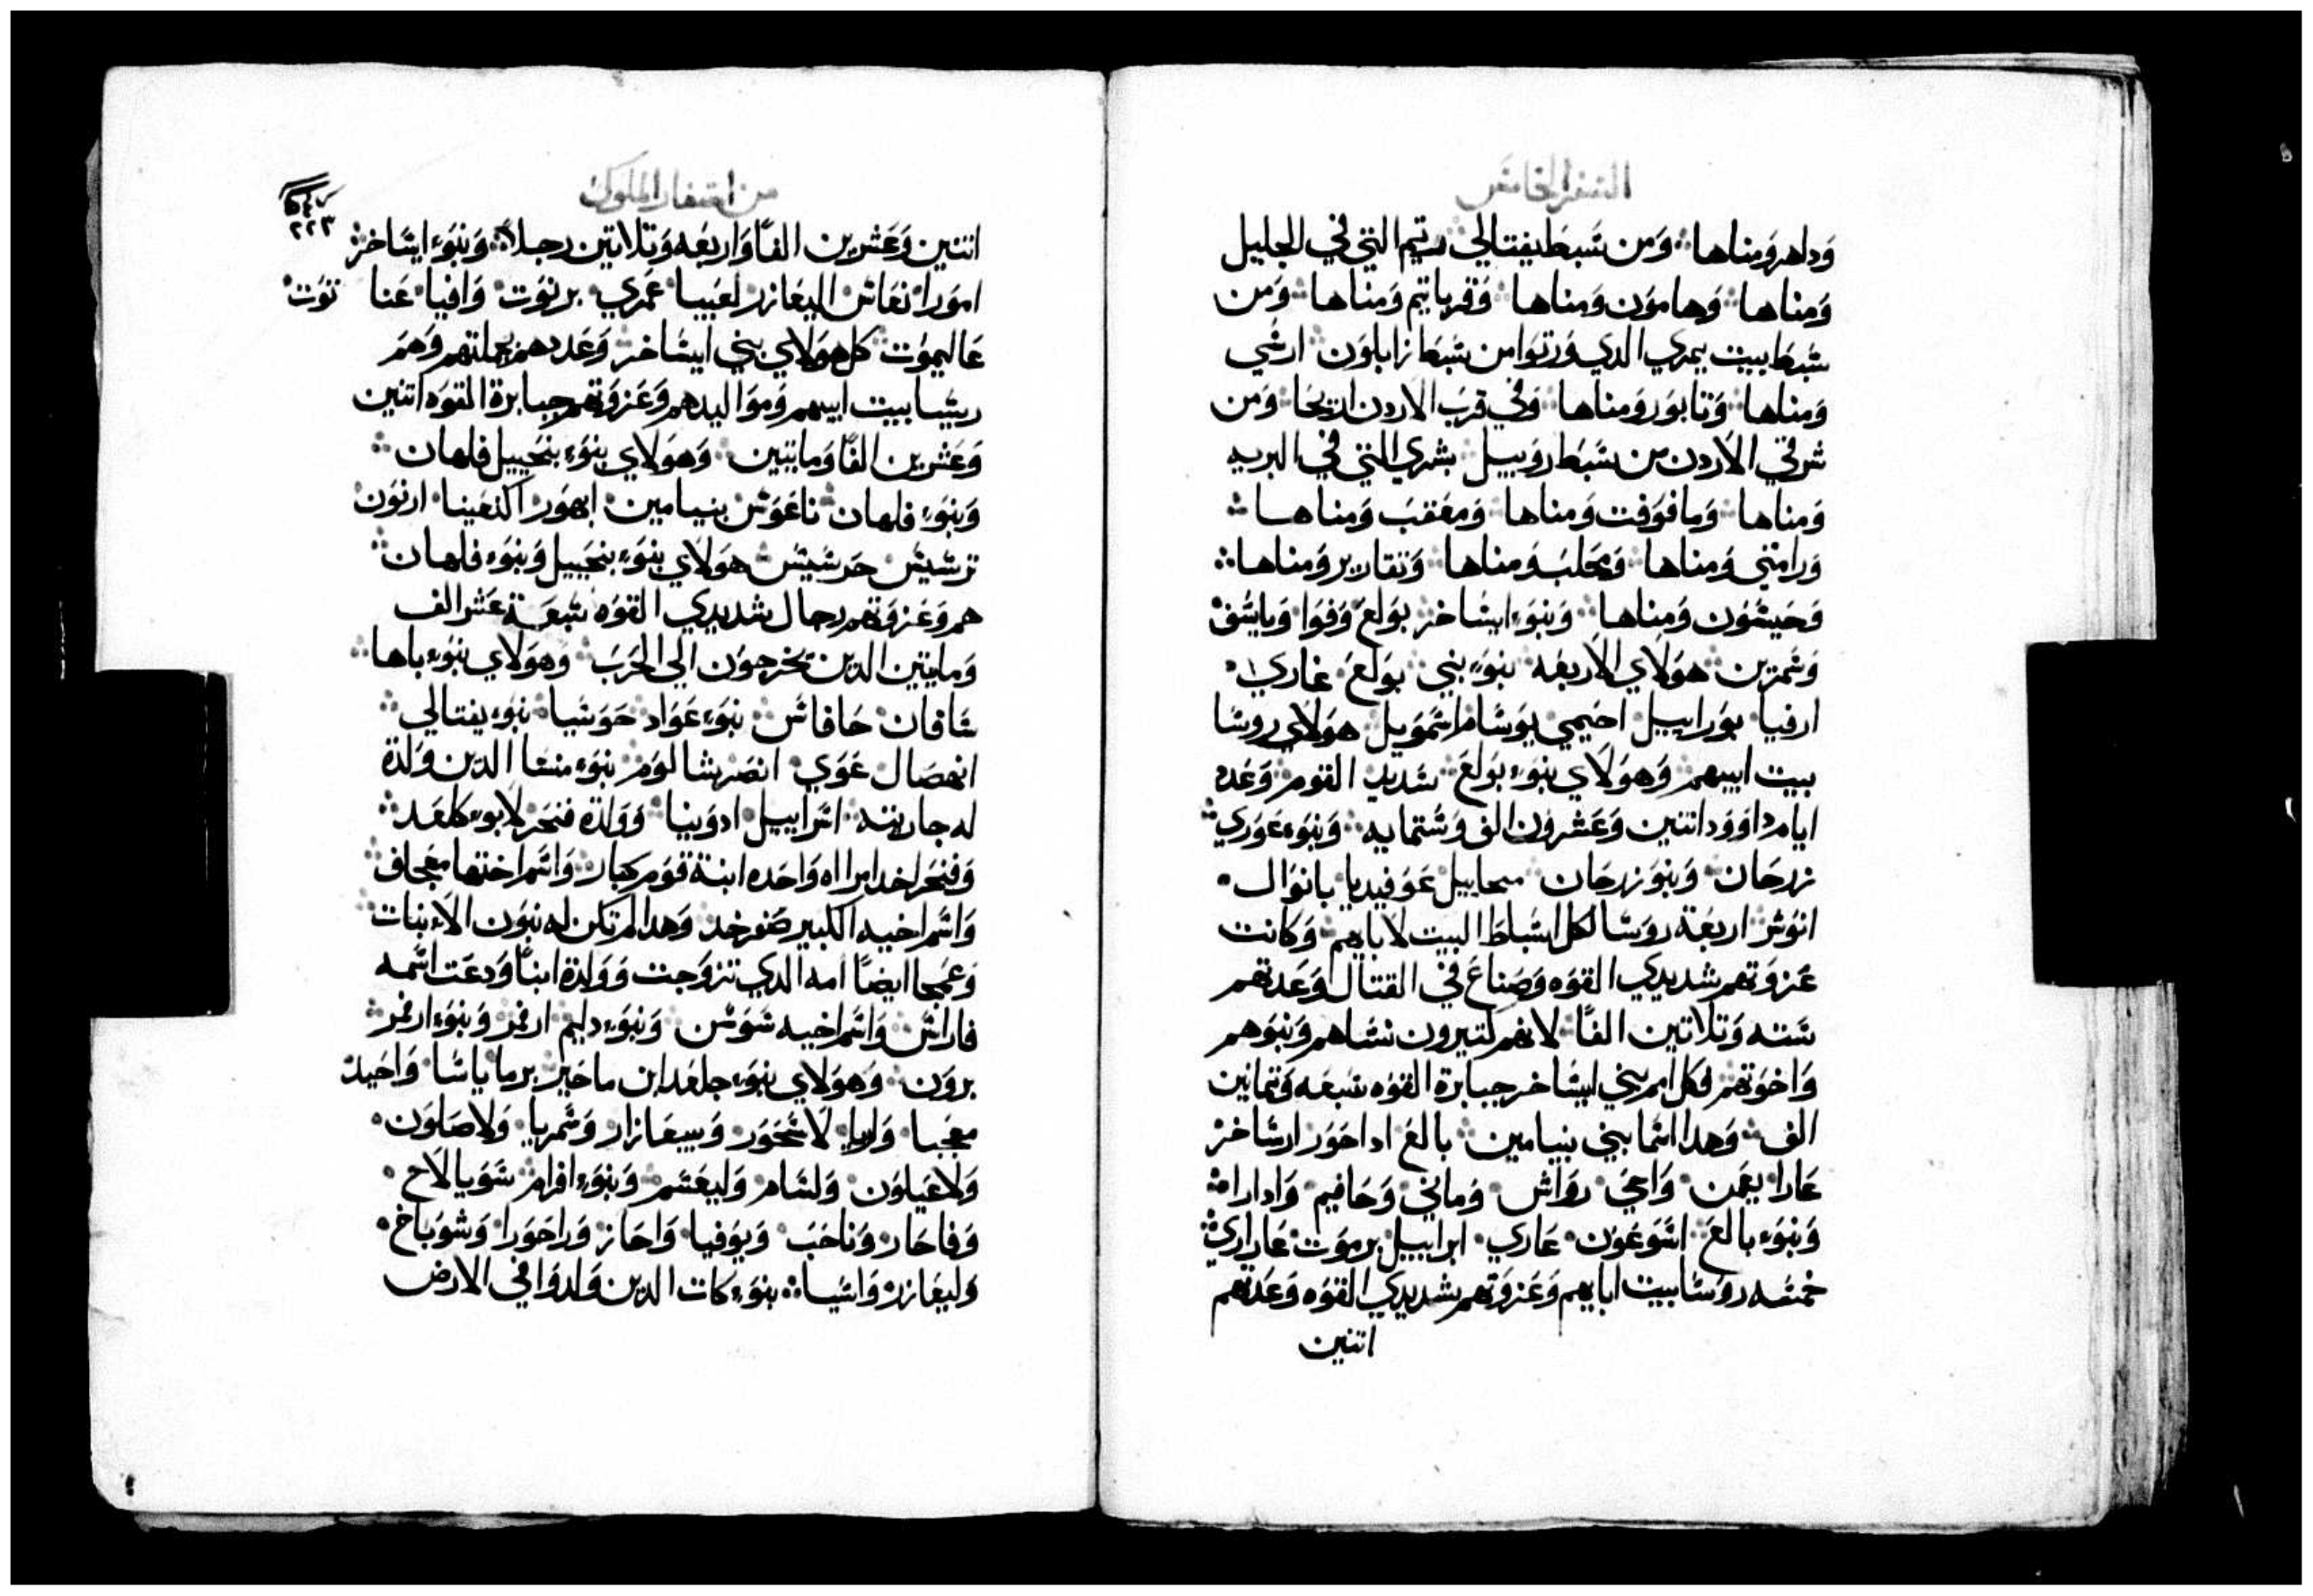 السفر الخامس
وداهر ومناها ۞ ومن سبط يفتالي رتيم التي في الجليل
ومناها ۞ وهامون ومناها ۞ وقرياتيم ومناها ۞ ومن
سبط بيت يمري الدي ورتوا من سبط زابلون ۞ ارشي
ومناها ۞ وتابور ومناها ۞ وفي قرب الاردن اريحا ۞ ومن
شرقي الاردن من سبط روبيل ۞ بشري التي في البريه
ومناها ۞ ومافوفت ومناها ۞ ومعقب ومناها ۞
ورامتي ومناها ۞ ومحلب ومناها ۞ وتقارير ومناها ۞
وحيشون ومناها ۞ وبنوء ايساخر ۞ بولع وفوا وياسف ۞
وشمرين ۞ هولاي الاربعه ۞ بنوء بني ۞ بولع ۞ غاري ۞
ارفيا ۞ بوراييل احيمي يوساما شمويل ۞ هولاي روسا
بيت ابيهم ۞ وهولاي بنوء بولع ۞ شديد القوم ۞ وعدد
ايام داوود اتنين وعشرون الف وستمايه ۞ وبنوء عوري ۞
زرحان ۞ وبنو زرحان ۞ ميحاييل عوفيديا بانوال ۞
انوش ۞ اربعة روسا لكل اسباط البيت لاباهم ۞ وكانت
عزوتهم شديدي القوه وصناع في القتال وعدتهم
سته وتلاتين الفا ۞ لانهم كتيرون نساهم وبنوهم
واخوتهم فكل امر بني ايساخر جبابرة القوه سبعه وتمانين
الف ۞ وهدا اسما بني بنيامين ۞ بالع ادا حور ارساخر ۞
عارا ۞ يعمن ۞ واعي ۞ رواش ۞ وماني ۞ وحافيم ۞ وادارا ۞
وبنوء بالع ۞ اسوعون ۞ عاري ۞ ابراييل يرموت ۞ عاراري ۞
خمسه روسا بيت اباهم وعزوتهم شديدي القوه وعدتهم
اتنين
من اسفار الملوك
٢٢٣
اتنين وعشرين الفا واربعه وتلاتين رجلا ۞ وبنوء ايساخر ۞
امورا ۞ نعاش اليعازر لعيبا ۞ عمري ۞ برنوت ۞ وافيا ۞ عنا توت ۞
عاليموت ۞ كل هولاي بني ايساخر ۞ وعددهم بجملتهم وهم
ريسا بيت ابيهم ومواليدهم وعزوتهم جبابرة القوه اتنين
وعشرين الفا ومايتين ۞ وهولاي بنوء بنحييل فلهان ۞
وبنوء فلهان ۞ ناغوش بنيامين ۞ ايهور الدفينا ۞ ارنون ۞
ترشيش حرشيش ۞ هولاي بنوء بنحييل وبنوء فلهان ۞
هم وعزوتهم رجال شديدي القوه سبعة عشر الف
ومايتين الدين يخرجون الي الحرب ۞ وهولاي بنوء باها ۞
شافان ۞ حافاش ۞ بنوء عواد ۞ حوشيا ۞ بنوء يفتالي ۞
انهصال عوي ۞ انصر شالوم ۞ بنوء منسا الدين ولدة
له جاريته ۞ اتراييل ادوبيا ۞ وولدة فنحر لابوء كلعد ۞
وفنحر اخد امراه واحده ابنة قوم كبار ۞ واسم اختها معجاف ۞
واسم اخيه الكبير صفرخد ۞ وهدا لم تكن له بنون الا بنات ۞
وعمجا ايضا امه الدي تزوجت وولدة ابنا ودعت اسمه
فاراش ۞ واسم اخيه شوش ۞ وبنوء دليم ارفر ۞ وبنوء ارفر ۞
برون ۞ وهولاي بنوء جلعد ابن ماخير ۞ برما ياسا ۞ واحيد ۞
معجبا ۞ وليا ۞ لاشحور ۞ وبيعازار ۞ وشمريا ۞ ولاصاون ۞
ولاعياون ۞ ولسام ۞ وليعسم ۞ وبنوء افرام ۞ شويا لاح ۞
وفاحار ۞ وناحب ۞ ويوفيا ۞ واحاز ۞ وراحورا ۞ وشوباخ ۞
وليعازر ۞ واسيا ۞ بنوء كات الدين ولدوا في الارض